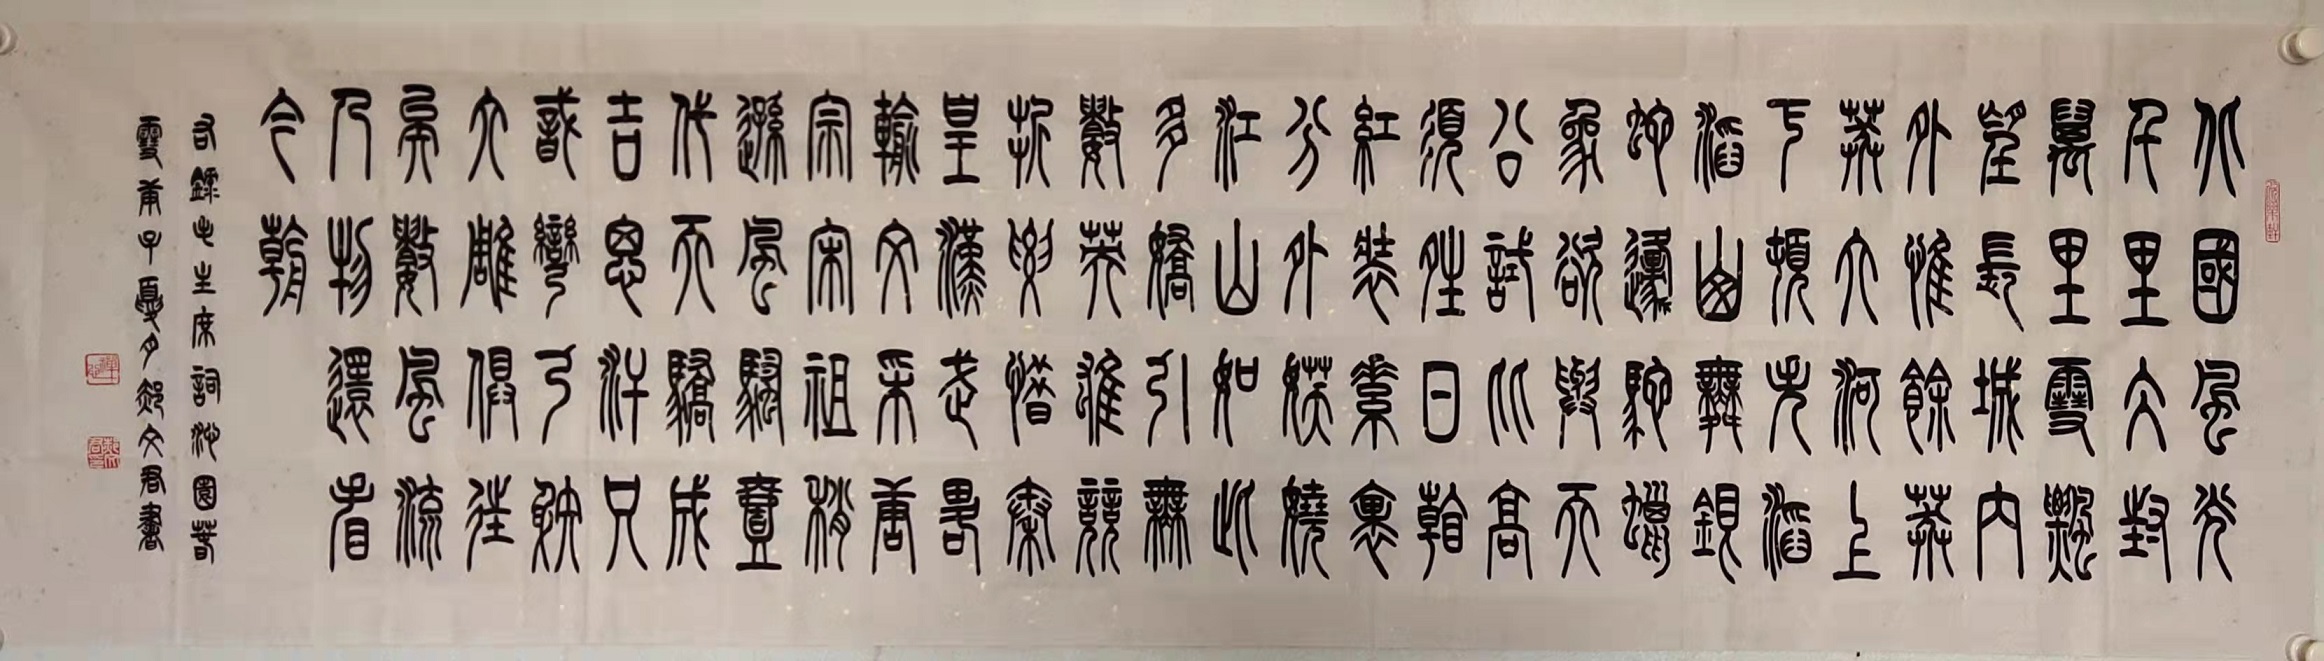 北國風光
千里冰封
萬里雪飄
望長城內
外惟餘莽
莽大河上
下頓失滔
滔山舞銀
蛇原馳蠟
象欲與天
公試比高
須晴日看
紅裝素裹
分外妖嬈
江山如此
多嬌引無
數英雄競
折腰惜秦
皇漢武略
輸文采唐
宗宋祖稍
遜風騷壹
代天驕成
吉思汗只
識彎弓射
大雕俱往
矣數風流
人物還看
今朝
右錄毛主席詞沁園春
雪庚子夏夕文君書